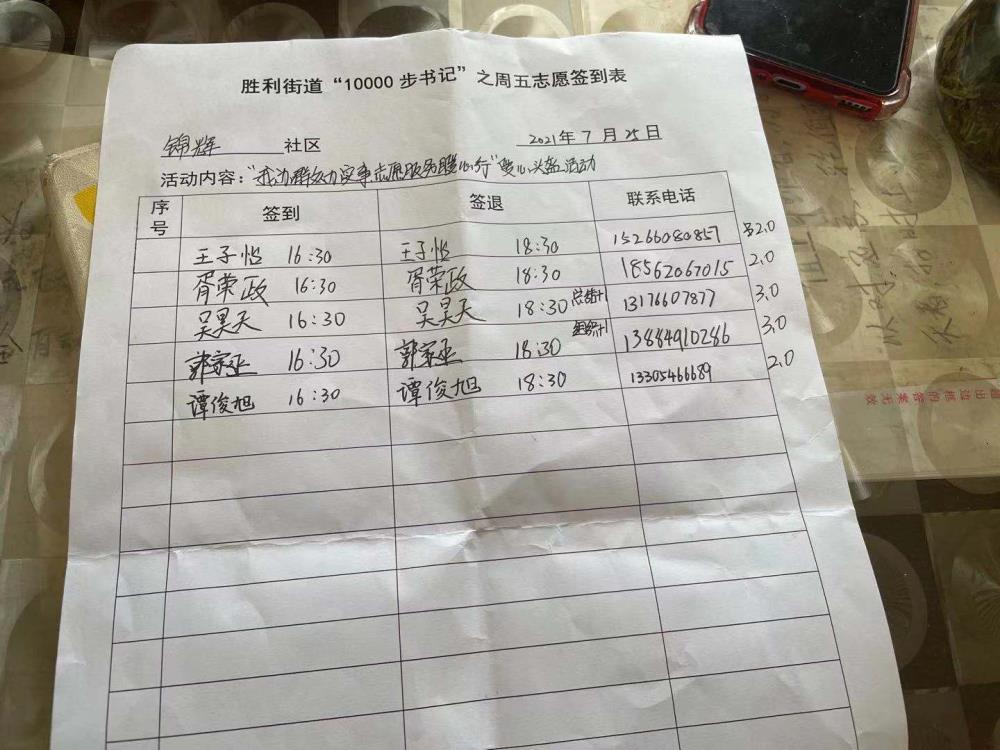 胜利街道“10000步书记”之周五志愿签到表
锦辉 社区 2021年7月25日
活动内容：“我为群众办实事志愿服务暖心行”爱心头盔活动
序号 签到 签退 联系电话
王子怡 16:30 王子怡 18:30 15266080857 2.0
胥荣政 16:30 胥荣政 18:30 18562067015 2.0
吴昊天 16:30 吴昊天 18:30 13176607877 3.0
郭家丞 16:30 郭家丞 18:30 13884910286 3.0
谭俊旭 16:30 谭俊旭 18:30 13305466689 2.0
出边框的答案无效